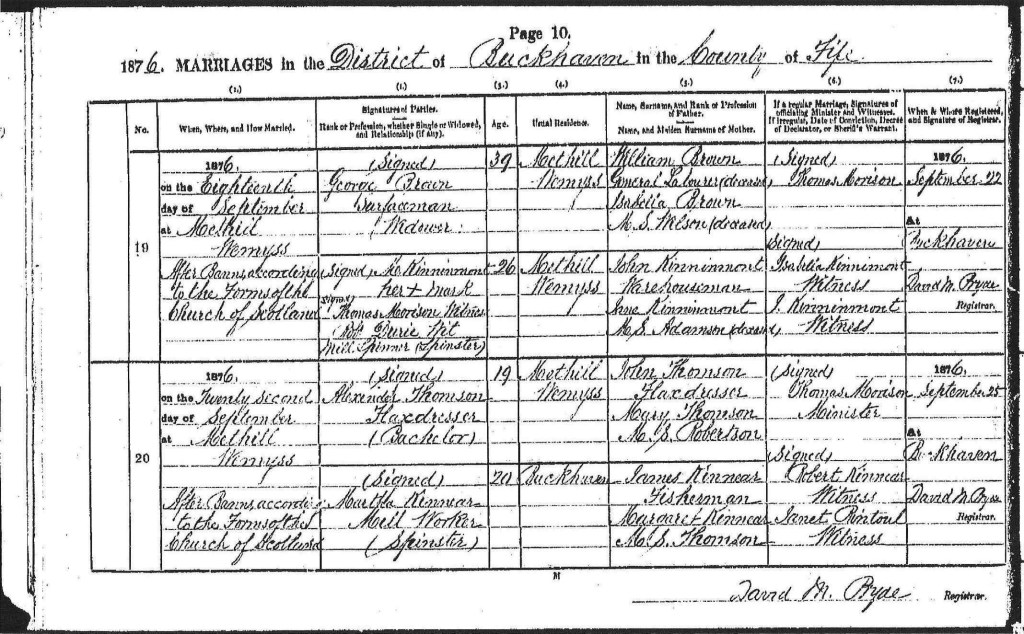 Page 10.
1876. MARRIAGES in the District of Buckhaven in the County of Fife
(1.) (2.) (3.) (4.) (5.) (6.) (7.)
No.
When, Where, and How Married.
Signatures of Parties.
Rank or Profession, whether Single or Widowed, and Relationship (if any).
Age.
Usual Residence.
Name, Surname, and Rank or Profession of Father.
Name, and Maiden Surname of Mother.
If a regular Marriage, Signatures of officiating Minister and Witnesses.
If irregular, Date of Conviction, Decree of Declarator, or Sheriff's Warrant.
When & Where Registered, and Signature of Registrar.
19
1876.
on the Eighteenth
day of September
at Methil
Wemyss
After Banns according
to the Forms of the
Church of Scotland
(Signed)
George Brown
Surfaceman
Widower
(Signed) Kinninmont
her + mark
(Signed)
Thomas Morison Witness
Robt. Durie Wit
Mill Spinner (Spinster)
39
26
Methill
Wemyss
Methill
Wemyss
William Brown
General Labourer (deceased)
Isabella Brown
M. S. Wilson (deceased)
John Kinninmont
Warehouseman
Anne Kinninmont
M. S. Adamson (deceased)
(Signed)
Thomas Morison
(Signed)
Isabella Kinnimont
Witness
J. Kinninmont
Witness
1876.
September 22
At
Buckhaven
David M. Ryde
Registrar.
20
1876.
on the Twenty second
day of September
at Methill
Wemyss
After Banns accordin
to the Forms of the
Church of Scotland
(Signed)
Alexander Thomson
Flaxdresser
(Bachelor)
(Signed)
Martha Kinnear
Mill Worker
(Spinster)
19
20
Methill
Wemyss
Buckhaven
John Thomson
Flaxdresser
Mary Thomson
M. S. Robertson
James Kinnear
Fisherman
Margaret Kinnear
M. S. Thomson
(Signed)
Thomas Morison
Minister
(Signed)
Robert Kinnear
Witness
Janet Rintoul
Witness
1876.
September 25
At
Buckhaven
David M. Ryde
Registrar.
M
David M. Ryde Registrar.